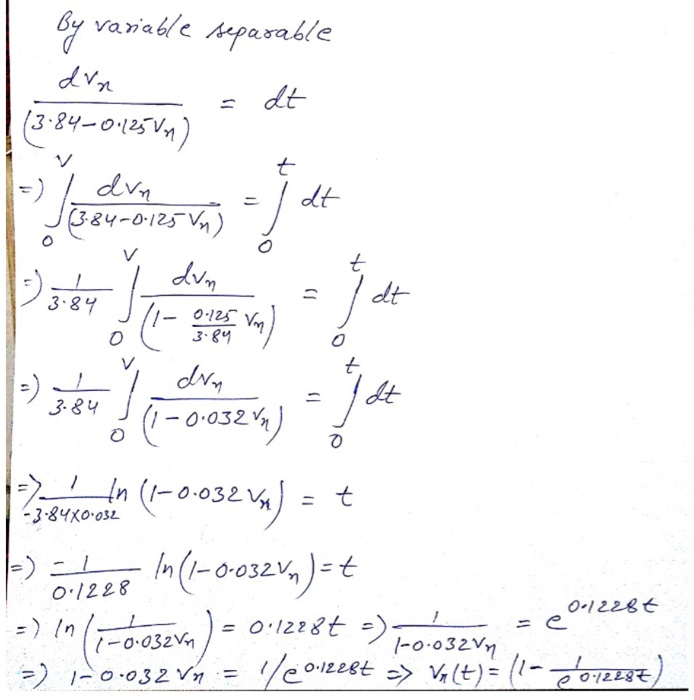 By variable separable
dvx / (3.84-0.125Vx) = dt
=) ∫₀^V dvx / (3.84-0.125Vx) = ∫₀^t dt
=) 1/3.84 ∫₀^V dvx / (1 - 0.125/3.84 Vx) = ∫₀^t dt
=) 1/3.84 ∫₀^V dvx / (1-0.032Vx) = ∫₀^t dt
=> 1/-3.84X0.032 ln (1-0.032Vx) = t
=) -1/0.1228 ln (1-0.032Vx) = t
=) ln (1/1-0.032Vx) = 0.1228t =) 1/1-0.032Vx = e^0.1228t
=) 1-0.032Vx = 1/e^0.1228t => Vx(t) = (1- 1/e^0.1228t)